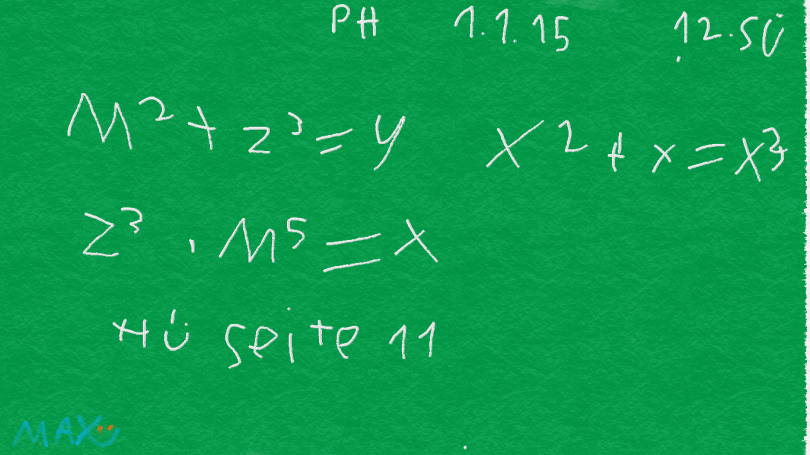 PH 1.1.15 12.SÜ
M²+z³=y x²+x=x³
z³·M⁵=x
HÜ Seite 11
MAX